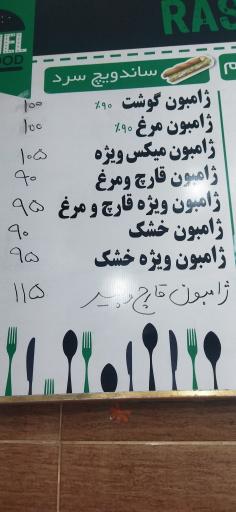 RAS
NEL
FOOD
ساندویچ سرد
ژامبون گوشت ۹۰٪ ۱۰۰
ژامبون مرغ ۹۰٪ ۱۰۰
ژامبون میکس ویژه ۱۰۵
ژامبون قارچ ومرغ ۹۰
ژامبون ویژه قارچ و مرغ ۹۵
ژامبون خشک ۹۰
ژامبون ویژه خشک ۹۵
ژامبون قارچ و پنیر ۱۱۵